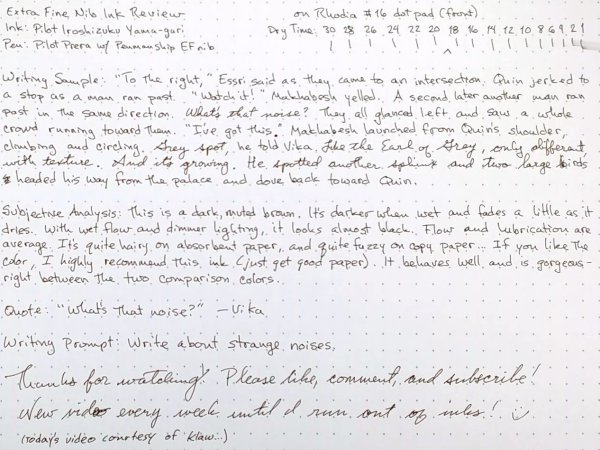 Extra Fine Nib Ink Review on Rhodia #16 dot pad (front)
Ink: Pilot Iroshizuku Yama-guri Dry Time: 30 28 26 24 22 20 18 16 14 12 10 8 6 4 2 1
Pen: Pilot Prera w/ Penmanship EF nib
Writing Sample: "To the right," Essri said as they came to an intersection. Quin jerked to
a stop as a man ran past. "Watch it!" Makhabesh yelled. A second later another man ran
past in the same direction. What's that noise? They all glanced left and saw a whole
crowd running toward them. "I've got this." Makhabesh launched from Quin's shoulder,
climbing and circling. Grey spot, he told Vika. Like the Earl of Grey, only different
with texture. And it's growing. He spotted another and two large birds
headed his way from the palace and dove back toward Quin.
Subjective Analysis: This is a dark, muted brown. It's darker when wet and fades a little as it
dries. With wet flow and dimmer lighting, it looks almost black. Flow and lubrication are
average. It's quite hairy on absorbent paper, and quite fuzzy on copy paper... If you like the
color, I highly recommend this ink (just get good paper). It behaves well and is gorgeous-
right between the two comparison colors.
Quote: "What's that noise?" -Vika
Writing Prompt: Write about strange noises.
Thanks for watching! Please like, comment, and subscribe!
New video every week until I run out of inks!
(Today's video courtesy of Klaw...)